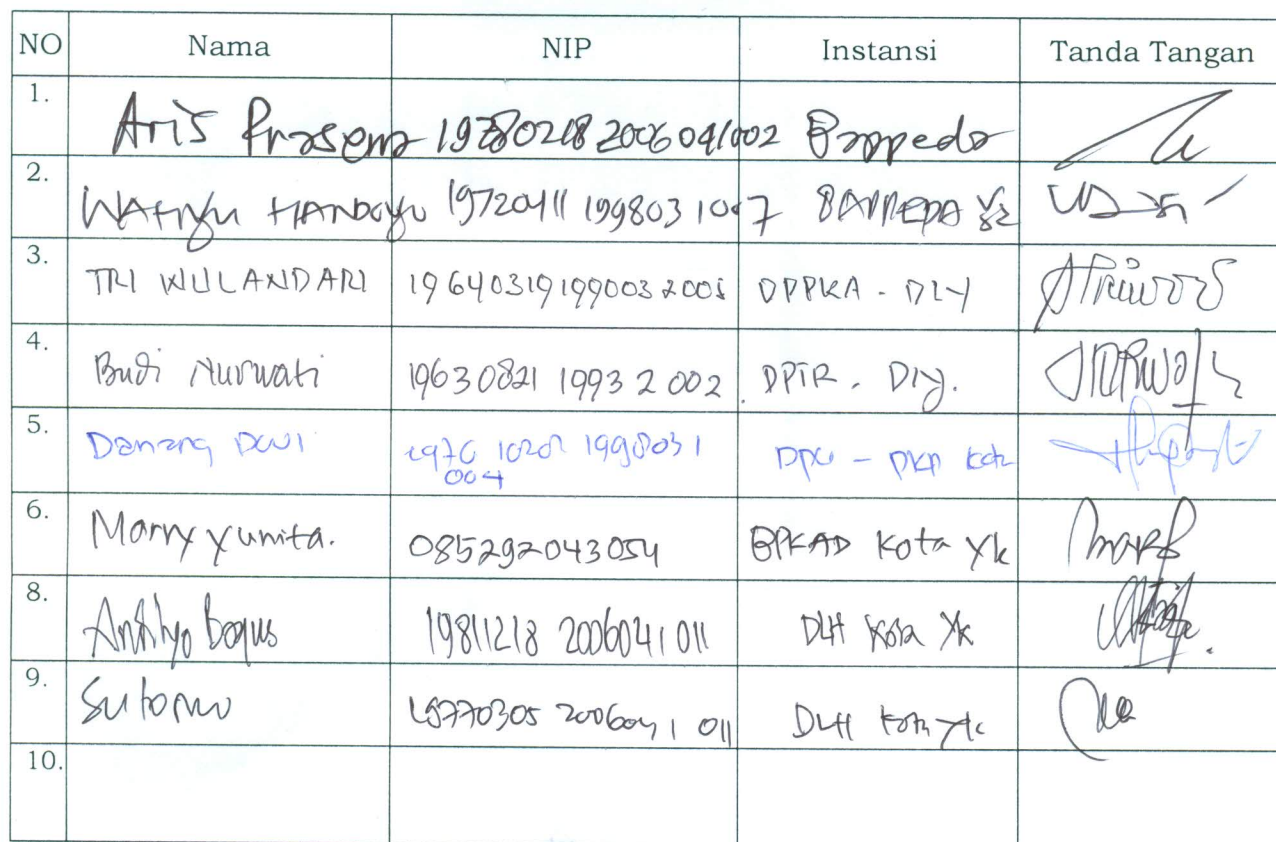 NO Nama NIP Instansi Tanda Tangan
1. Aris Prasena 19780218 2006041002 Bappeda
2. WAHYU HANDOYO 19720411 199803 1007 BAPPEDA YK
3. TRI WULANDARI 196403191990032005 DPPKA - DIY
4. Budi Nurwati 19630821 19932 002 DPTR . DIY.
5. Danang DWI 1998031
004 DPU - PKP Kota
6. Marry Yunita. 085292043054 BPKAD Kota Yk
8. Bagus 19811218 200604 1 011 DLH Kota Yk
9. Sutomo 19770305 200604 1 011 DLH Kota Yk
10.